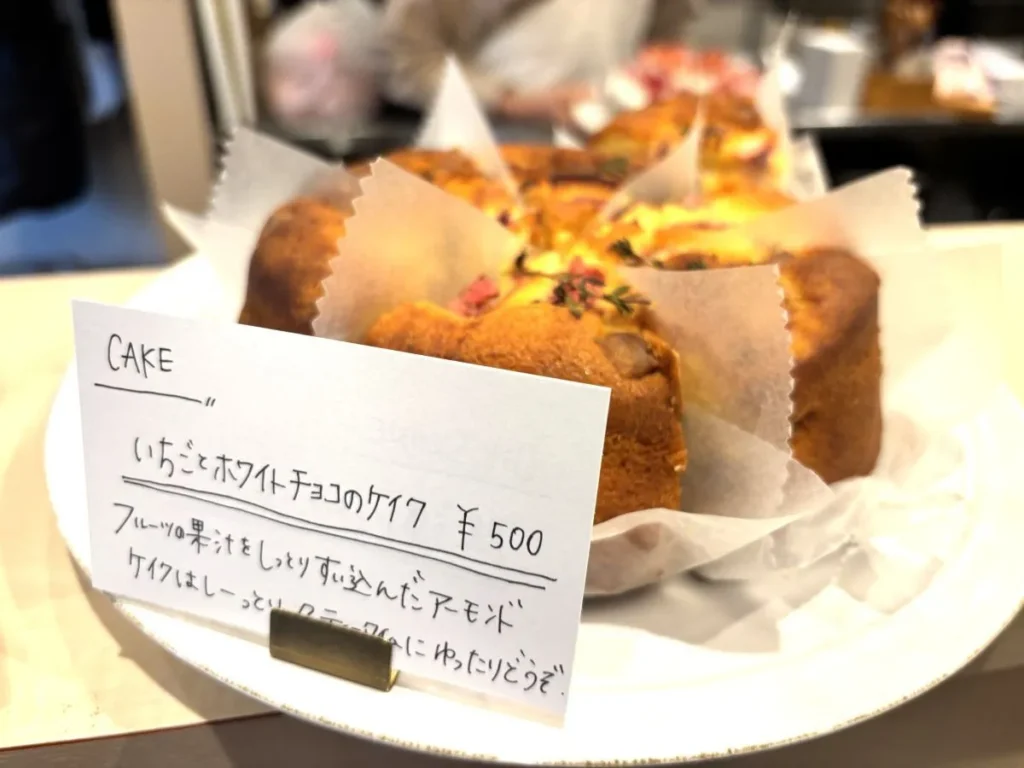 CAKE
いちごとホワイトチョコのケイク ¥500
フルーツの果汁をしっとりすい込んだアーモンド
ケイクはしーっとり ティータイムにゆったりどうぞ.